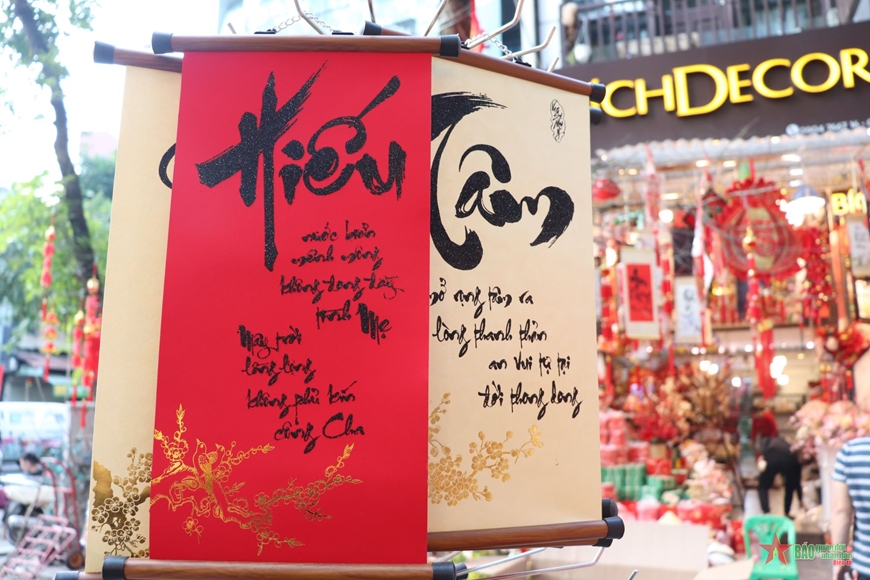 Hiếu
nước biển
mênh mông
không đong đầy
tình Mẹ
Mây trời
lồng lộng
không phủ kín
công Cha
Tâm
mở rộng tâm ra
lòng thanh thản
an vui tự tại
đời thong dong
CHDECOR
BÁO